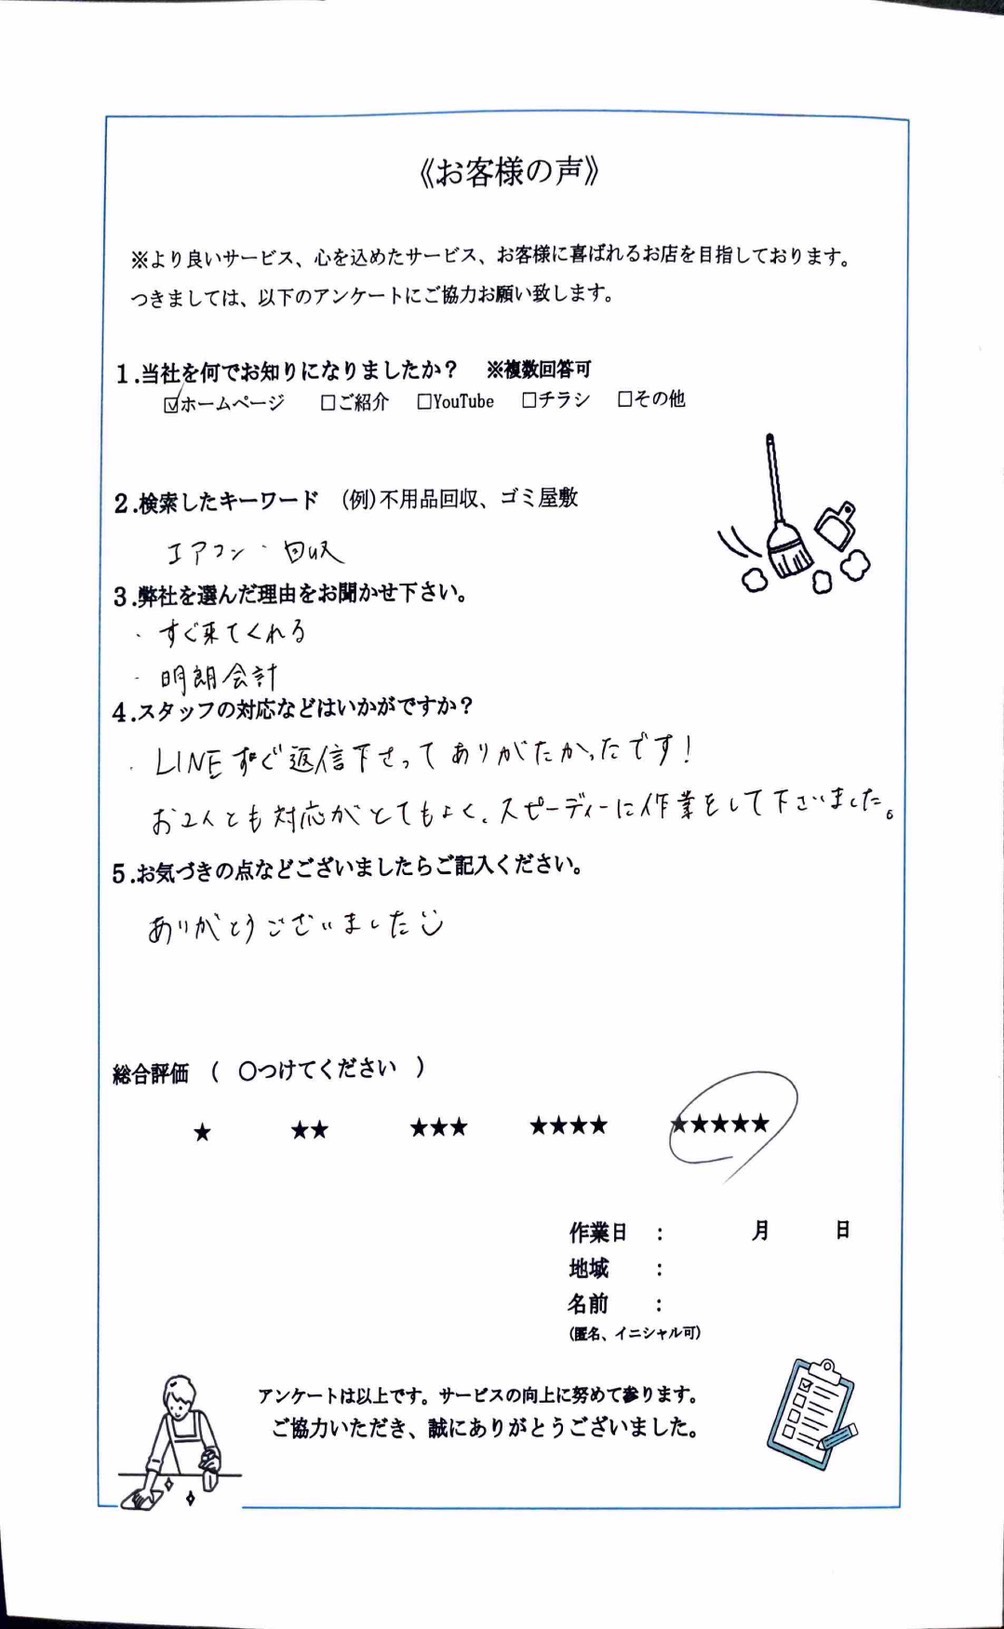 《お客様の声》
※より良いサービス、心を込めたサービス、お客様に喜ばれるお店を目指しております。
つきましては、以下のアンケートにご協力お願い致します。
1.当社を何でお知りになりましたか？ ※複数回答可
☑ホームページ □ご紹介 □YouTube □チラシ □その他
2.検索したキーワード (例)不用品回収、ゴミ屋敷
エアコン・回収
3.弊社を選んだ理由をお聞かせ下さい。
・すぐ来てくれる
・明朗会計
4.スタッフの対応などはいかがですか？
・LINEすぐ返信下さってありがたかったです！
お2人とも対応がとてもよく、スピーディーに作業をして下さいました。
5.お気づきの点などございましたらご記入ください。
ありがとうございました
総合評価 ( 〇つけてください )
★ ★★ ★★★ ★★★★ ★★★★★
作業日 : 月 日
地域 :
名前 :
(匿名、イニシャル可)
アンケートは以上です。サービスの向上に努めて参ります。
ご協力いただき、誠にありがとうございました。